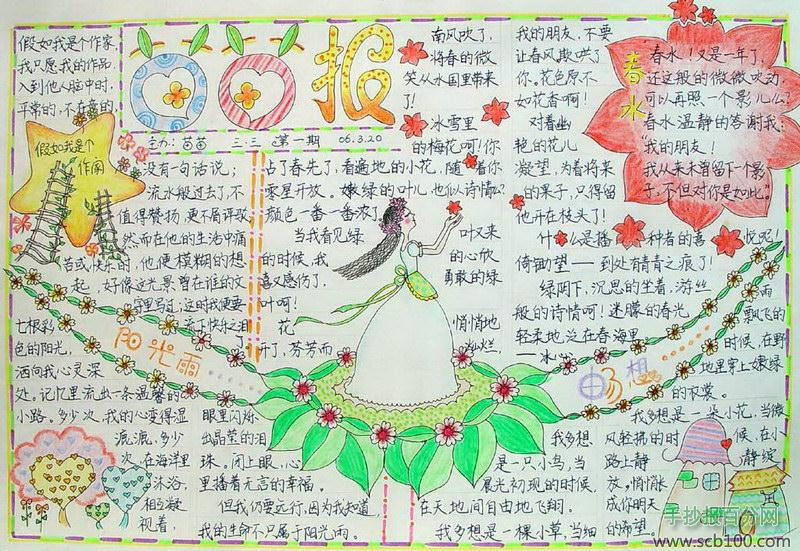 报
主办：苗苗 三.三 第一期 06.3.20
假如我是个作家
假如我是个作家，
我只愿我的作品
入到他人脑中时，
平常的，不在意的
没有一句话说；
流水般过去了，不
值得赞扬，更不屑评驳
然而在他的生活中痛
苦或快乐的
他便模糊的想
起，好像这光景曾在谁的文
字里写过；这时我便要
流下快乐之泪
了！
南风吹了，
将春的微
笑从水国里带来
了！
冰雪里
的梅花呵！你
占了春先了，看遍地的小花，随着你
零星开放。嫩绿的叶儿也似诗情
颜色一番一番浓了
当我看见绿
叶又来
的时候，我
的心欣
喜又感伤了，
勇敢的绿
叶呵！
花
悄悄地
开了，芬芳而
灿烂，
我的朋友，不要
让春风欺哄了
你，花色原不
如花香啊！
对着幽
艳的花儿
凝望，为着将来
的果子，只得留
他开在枝头了！
什么是播种者的喜悦呢！
倚锄望——到处有青青之痕了！
绿阴下，沉思的坐着，游丝
般的诗情呵！迷朦的春光
春水
春水！又是一年了，
还这般的微微吹动
可以再照一个影儿么？
春水温静的答谢我：
我的朋友！
我从来未曾留下一个影
子，不但对你是如此。
阳光雨
七根彩
色的阳光，
洒向我心灵深
处。记忆里流出一条温馨的
小路。多少次，我的心变得湿
漉漉，多少
次，在海洋里
沐浴，
相互凝
视着，
眼里闪烁
出晶莹的泪
珠。闭上眼，心
里播着无言的幸福。
但我仍要远行，因为我知道，
我的生命不只属于阳光雨。
畅想
我多想
是一只小鸟，当
晨光初现的时候，
在天地间自由地飞翔。
我多想是一棵小草，当细
雨
飘飞的
时候，在野
地里穿上嫩绿
的衣裳。
我多想是一朵小花，当微
风轻拂的时候，在小
路上静静绽
放，悄悄装
成你明天
的希望。
手抄报百分网
www.scb100.com